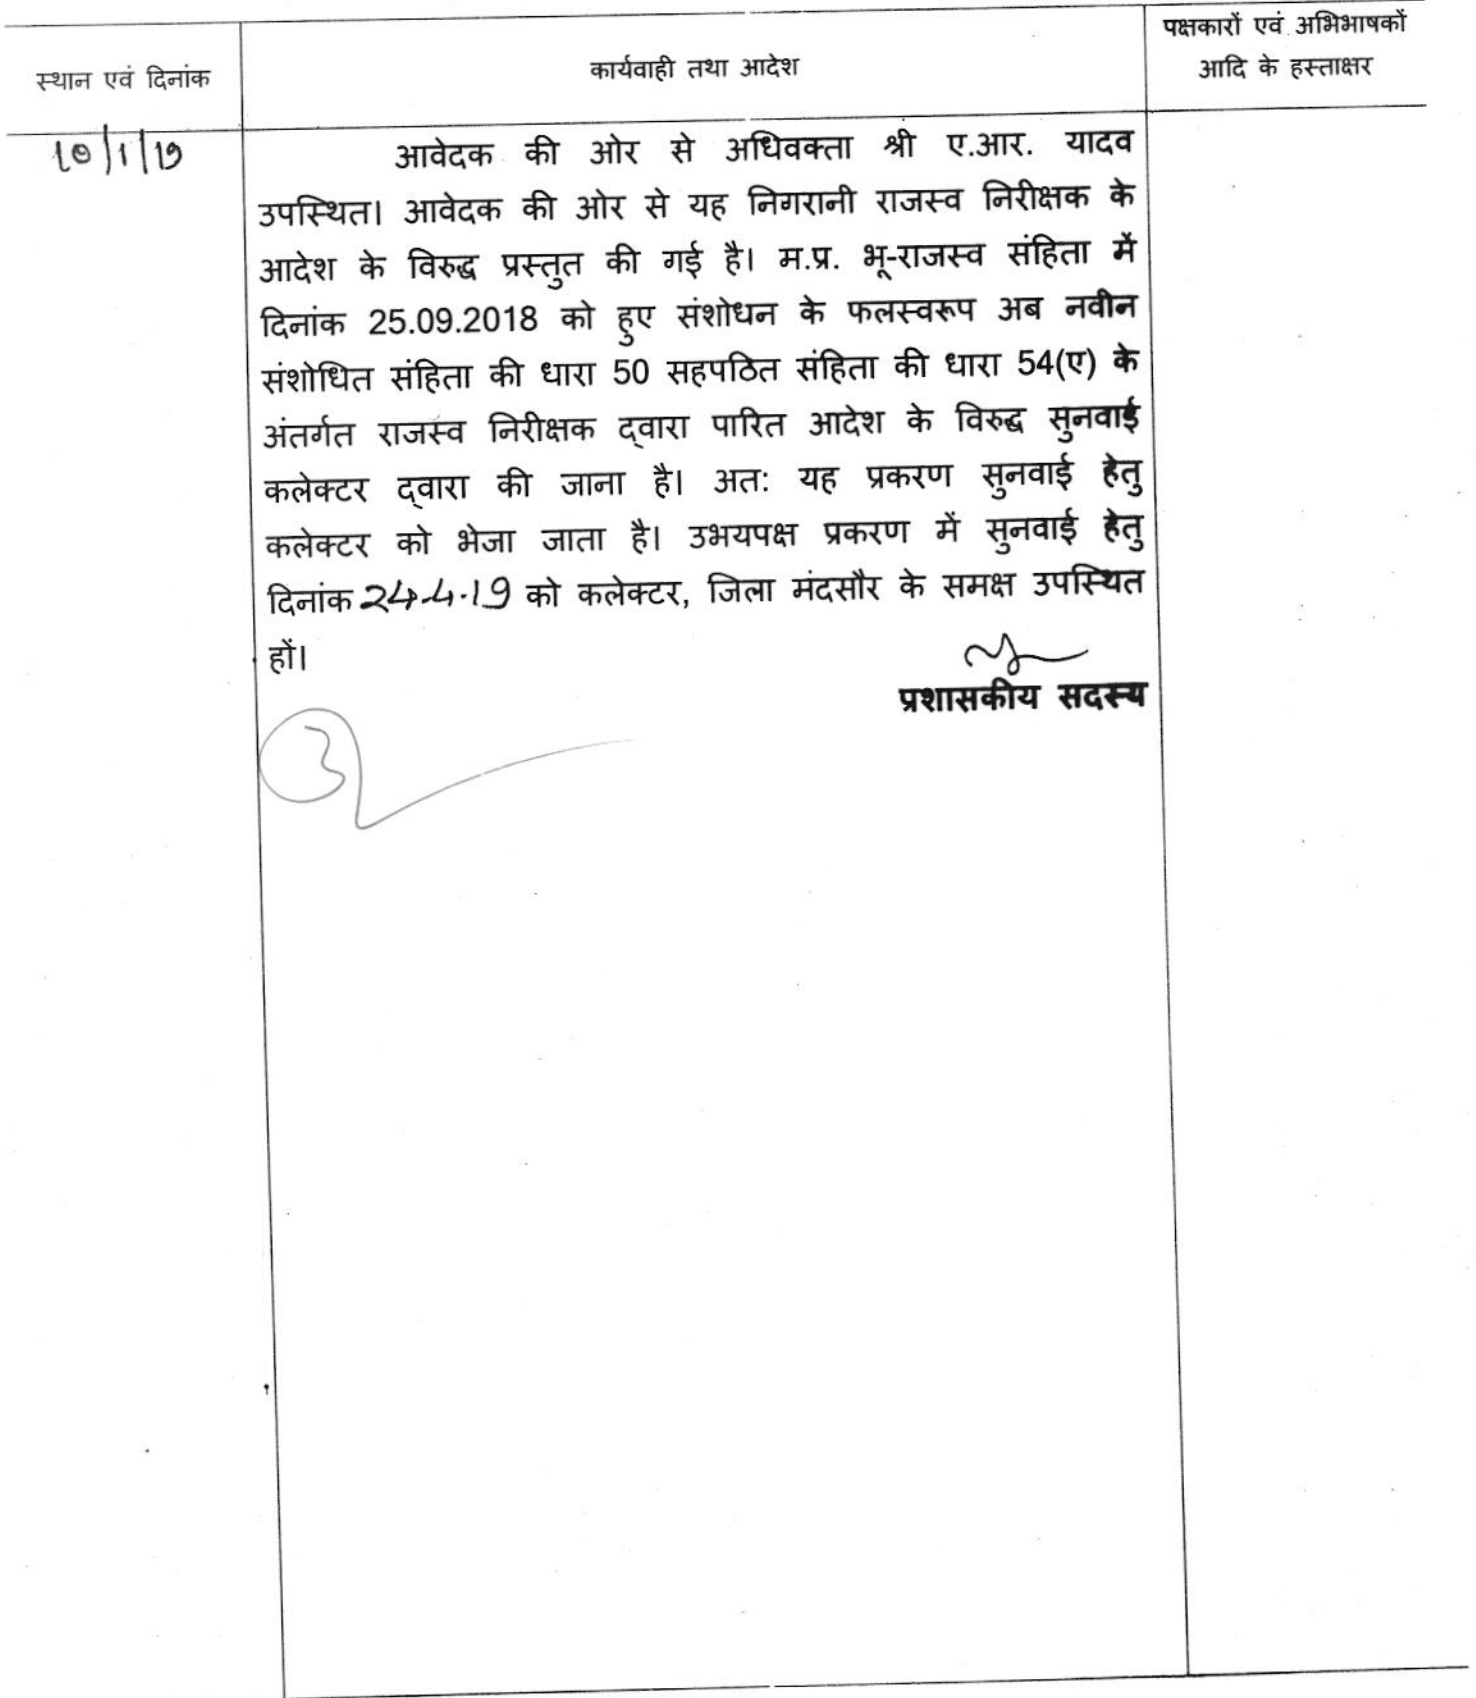 स्थान एवं दिनांक
कार्यवाही तथा आदेश
पक्षकारों एवं अभिभाषकों
आदि के हस्ताक्षर
10/1/19
आवेदक की ओर से अधिवक्ता श्री ए.आर. यादव
उपस्थित। आवेदक की ओर से यह निगरानी राजस्व निरीक्षक के
आदेश के विरुद्ध प्रस्तुत की गई है। म.प्र. भू-राजस्व संहिता में
दिनांक 25.09.2018 को हुए संशोधन के फलस्वरूप अब नवीन
संशोधित संहिता की धारा 50 सहपठित संहिता की धारा 54(ए) के
अंतर्गत राजस्व निरीक्षक द्वारा पारित आदेश के विरुद्ध सुनवाई
कलेक्टर द्वारा की जाना है। अतः यह प्रकरण सुनवाई हेतु
कलेक्टर को भेजा जाता है। उभयपक्ष प्रकरण में सुनवाई हेतु
दिनांक 24.4.19 को कलेक्टर, जिला मंदसौर के समक्ष उपस्थित
हों।
प्रशासकीय सदस्य